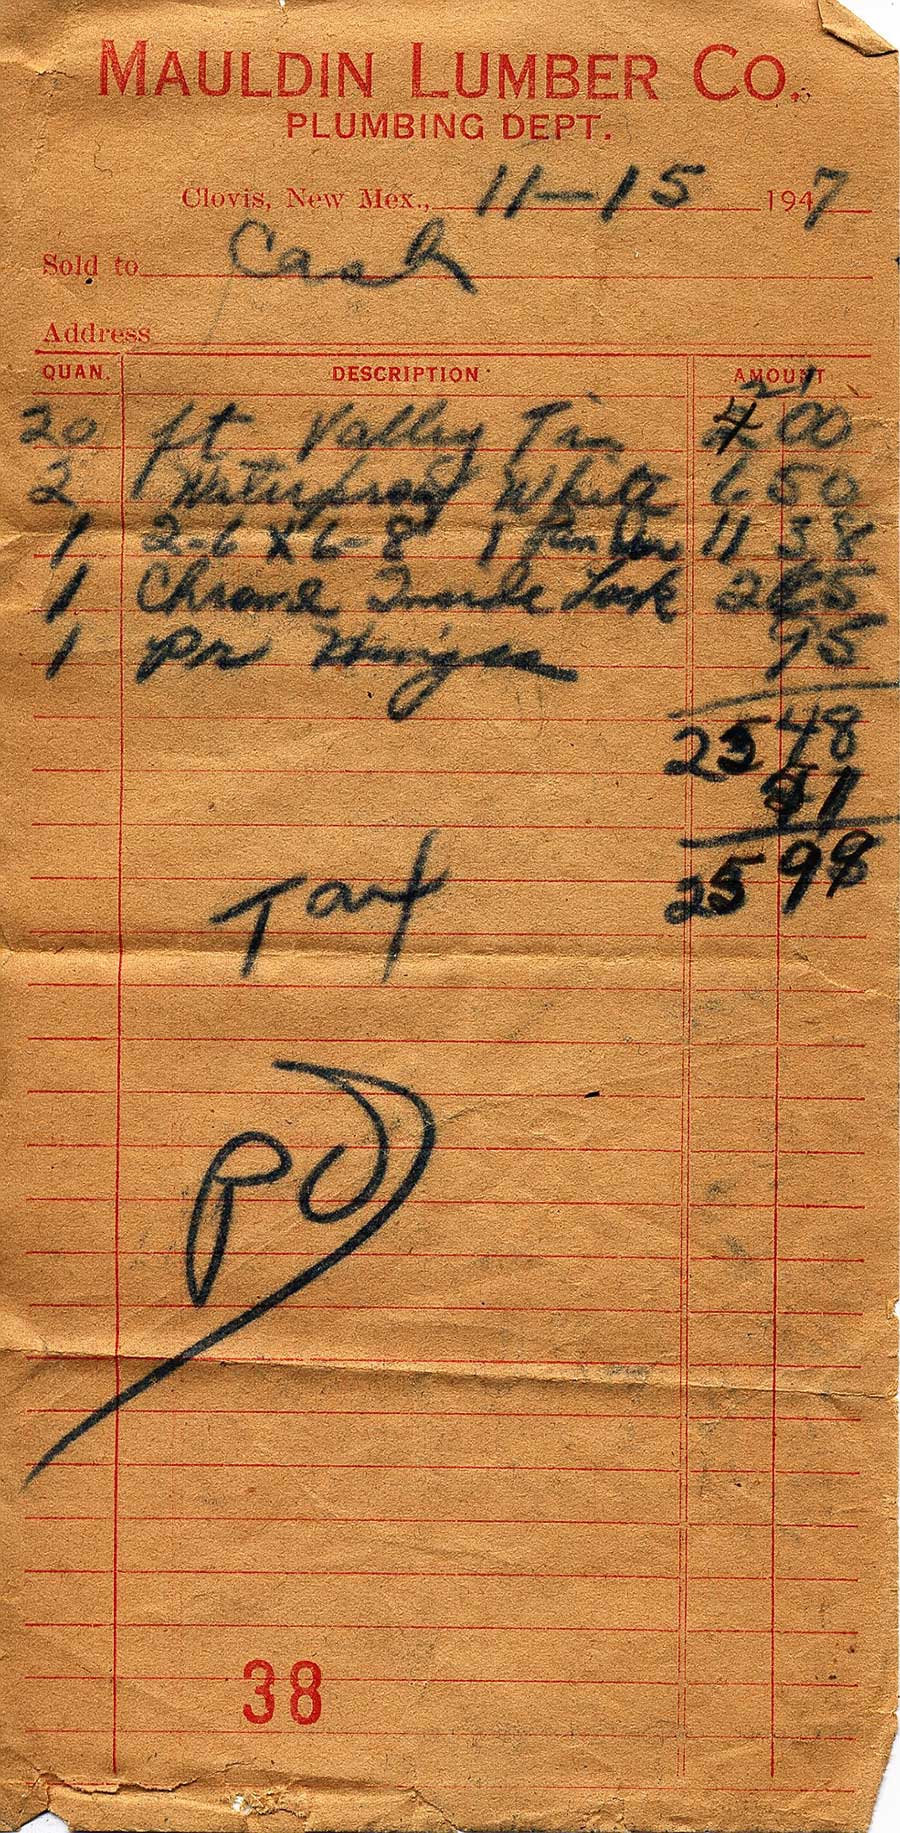 MAULDIN LUMBER CO.
PLUMBING DEPT.
Clovis, New Mex., 11-15 1947
Sold to Cash
Address
QUAN. DESCRIPTION AMOUNT
21
20 ft Valley Tin 4 00
2 Waterproof White 6 50
1 2-6 X 6-8 1 11 38
1 Chrome Inside Lock 2 85
1 Pr Hinges 75
25 48
51
25 98
Tax
PD
38